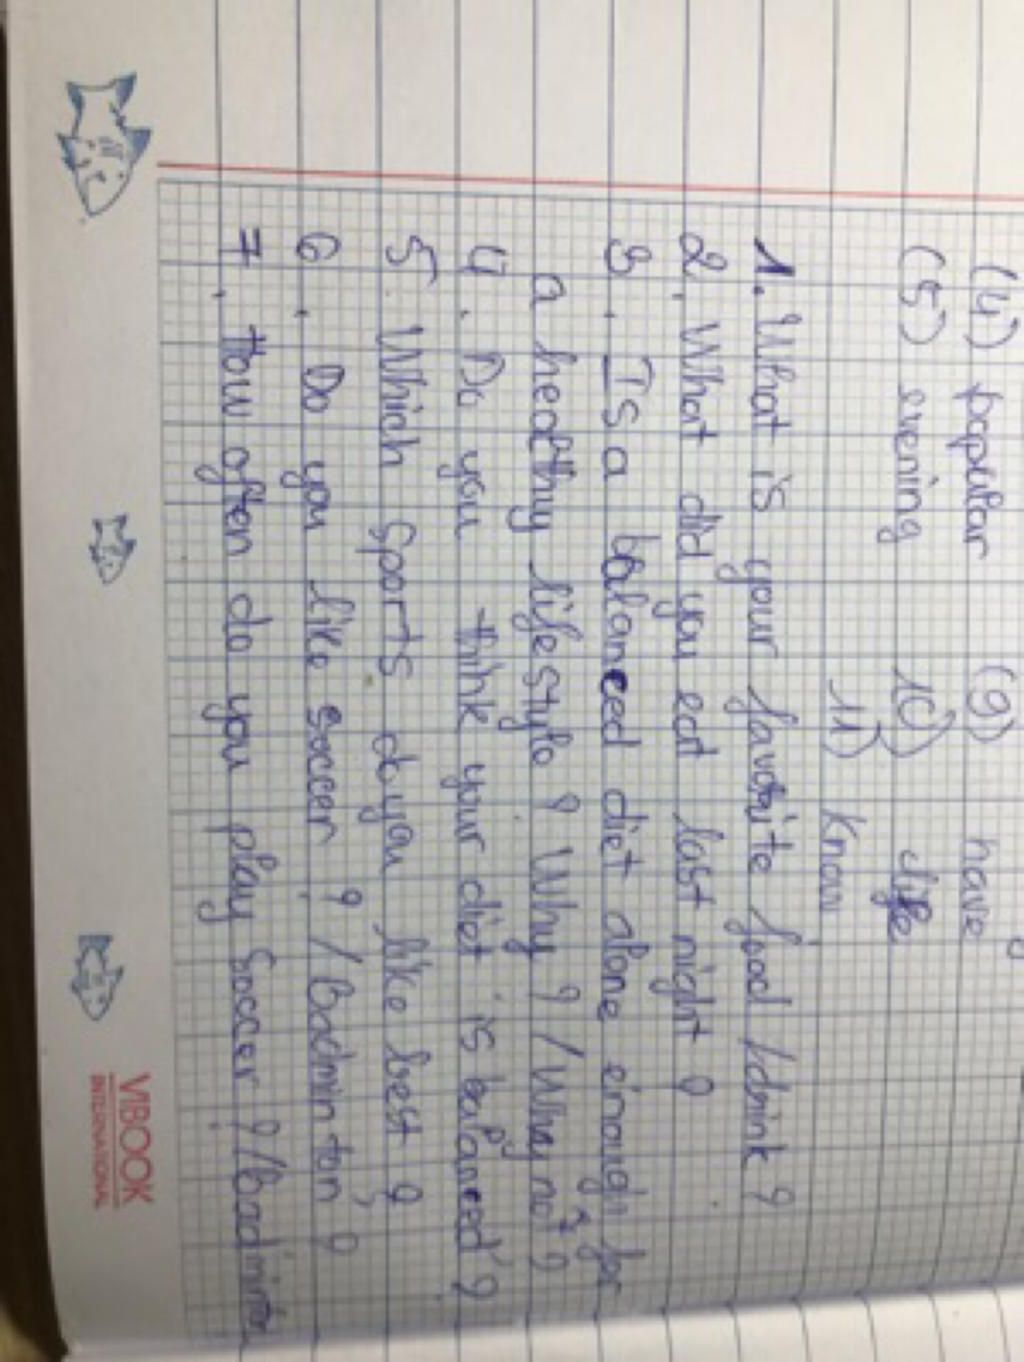 (4) popular (9) have
(5) evening 10) life
11) Know
1. What is your favorite food / drink ?
2. What did you eat last night ?
3. Is a balaneed diet alone enough for
a healthy lifestyle ? Why ? / Why not ?
4. Do you think your diet is balaneed ?
5. Which Sports do you like best ?
6. Do you like soccer ? / Badminton ?
7. How often do you play Soccer ? / Badminton
VIBOOK
INTERNATIONAL